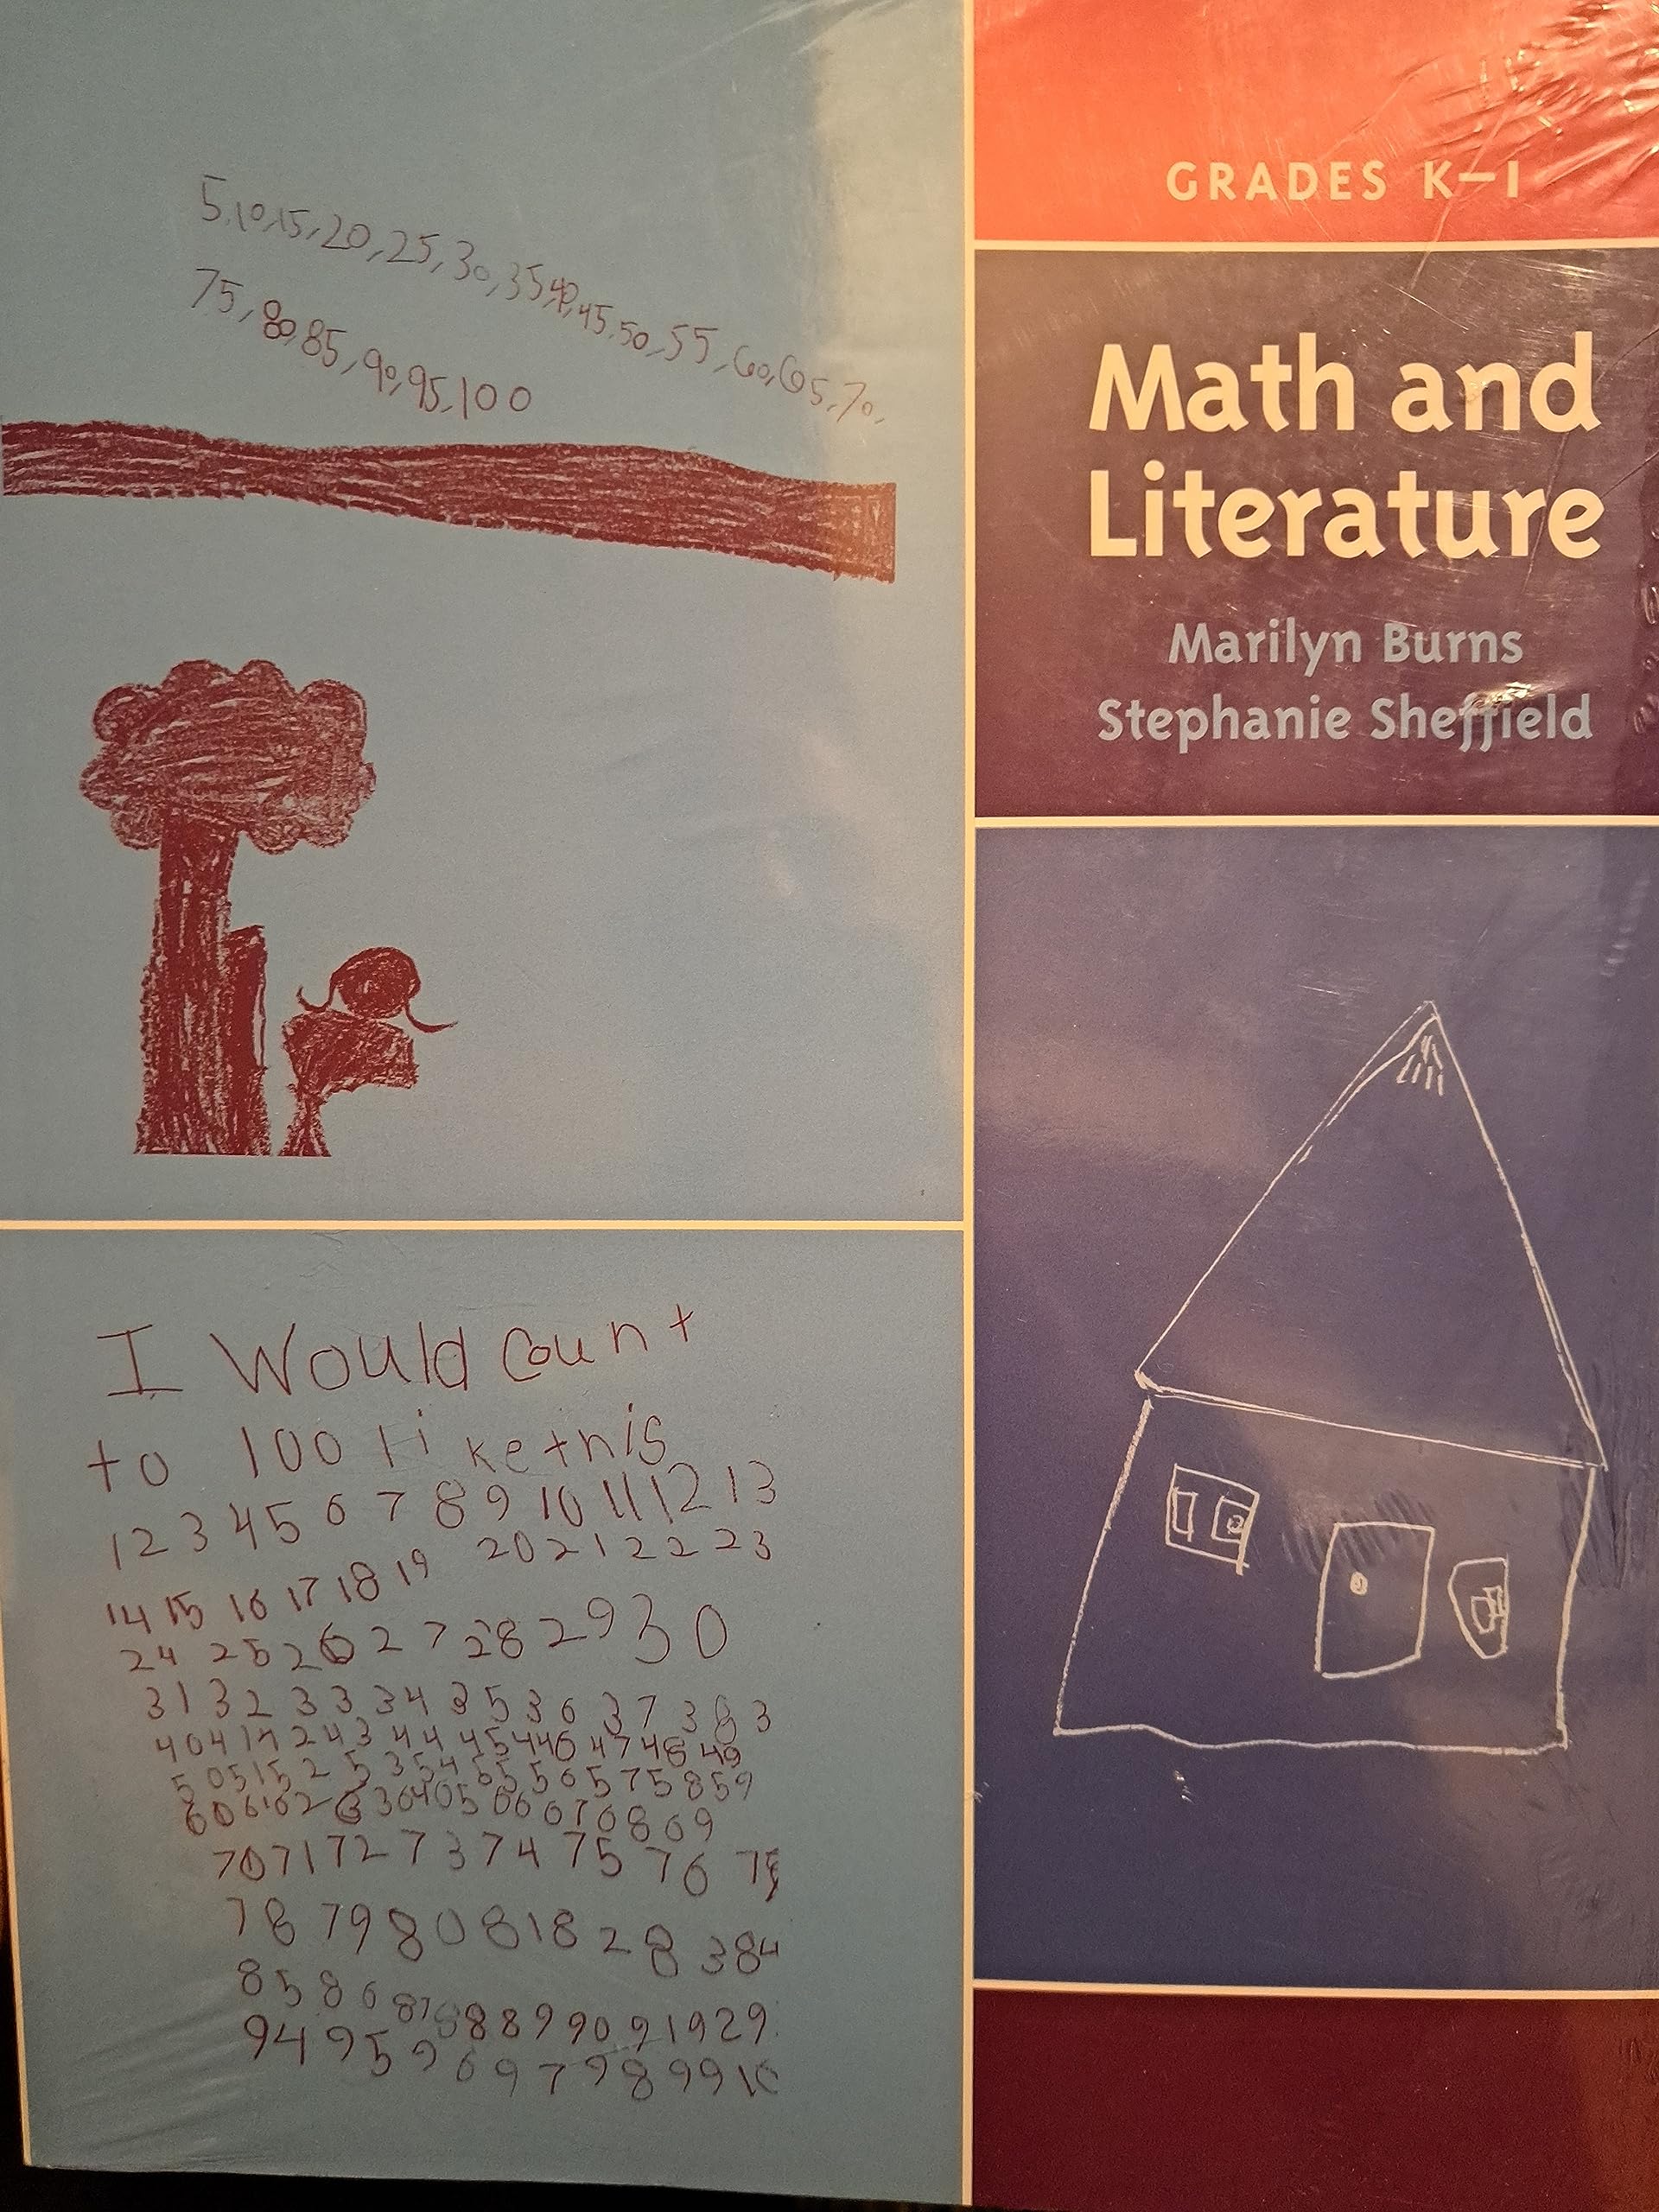 5,10,15,20,25,30,35,40,45,50,55,60,65,70,
75,80,85,90,95,100
GRADES K–1
Math and
Literature
Marilyn Burns
Stephanie Sheffield
I Would Count
to 100 like this
1 2 3 4 5 6 7 8 9 10 11 12 13
14 15 16 17 18 19 20 21 22 23
24 25 26 27 28 29 30
31 32 33 34 35 36 37 38 3
40 41 42 43 44 45 46 47 48 49
50 51 52 53 54 55 56 57 58 59
60 61 62 63 64 65 66 67 68 69
70 71 72 73 74 75 76
78 79 80 81 82 83 84
85 86 87 88 89 90 91 92 9
94 95 96 97 98 99 10